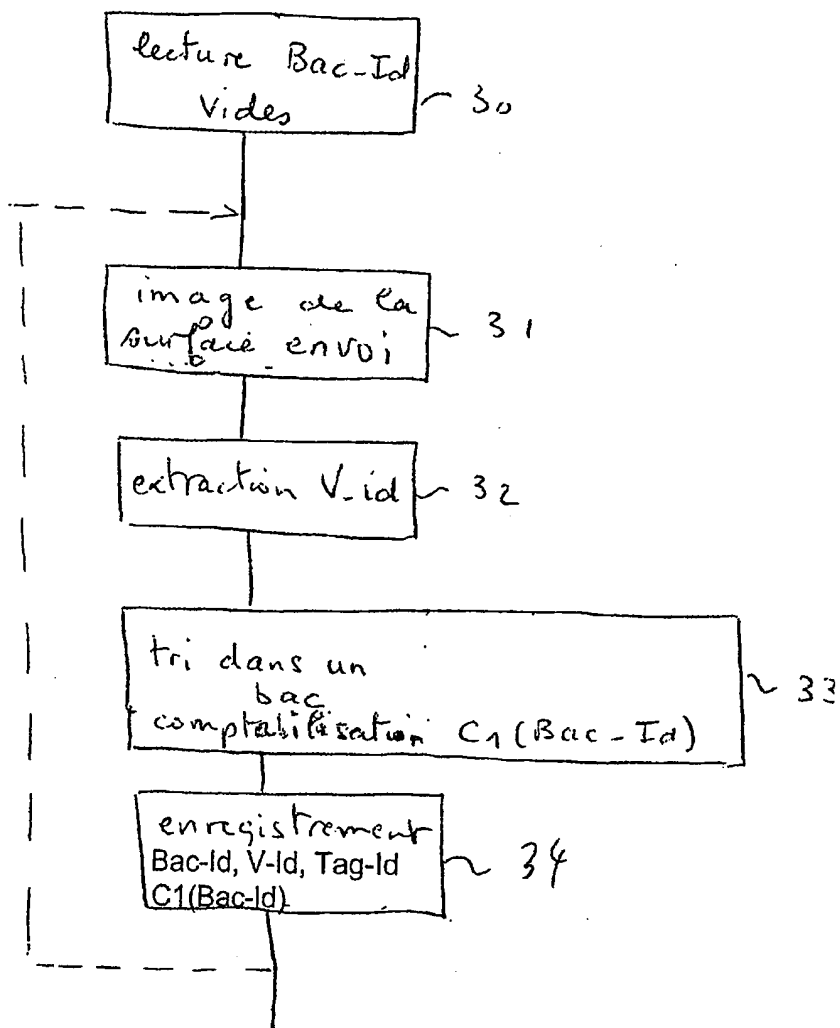 lecture Bac-Id
vides
30
image de la
surface envoi
31
extraction V-id
32
tri dans un
bac
comptabilisation C1 (Bac-Id)
33
enregistrement
Bac-Id, V-Id, Tag-Id
C1(Bac-Id)
34